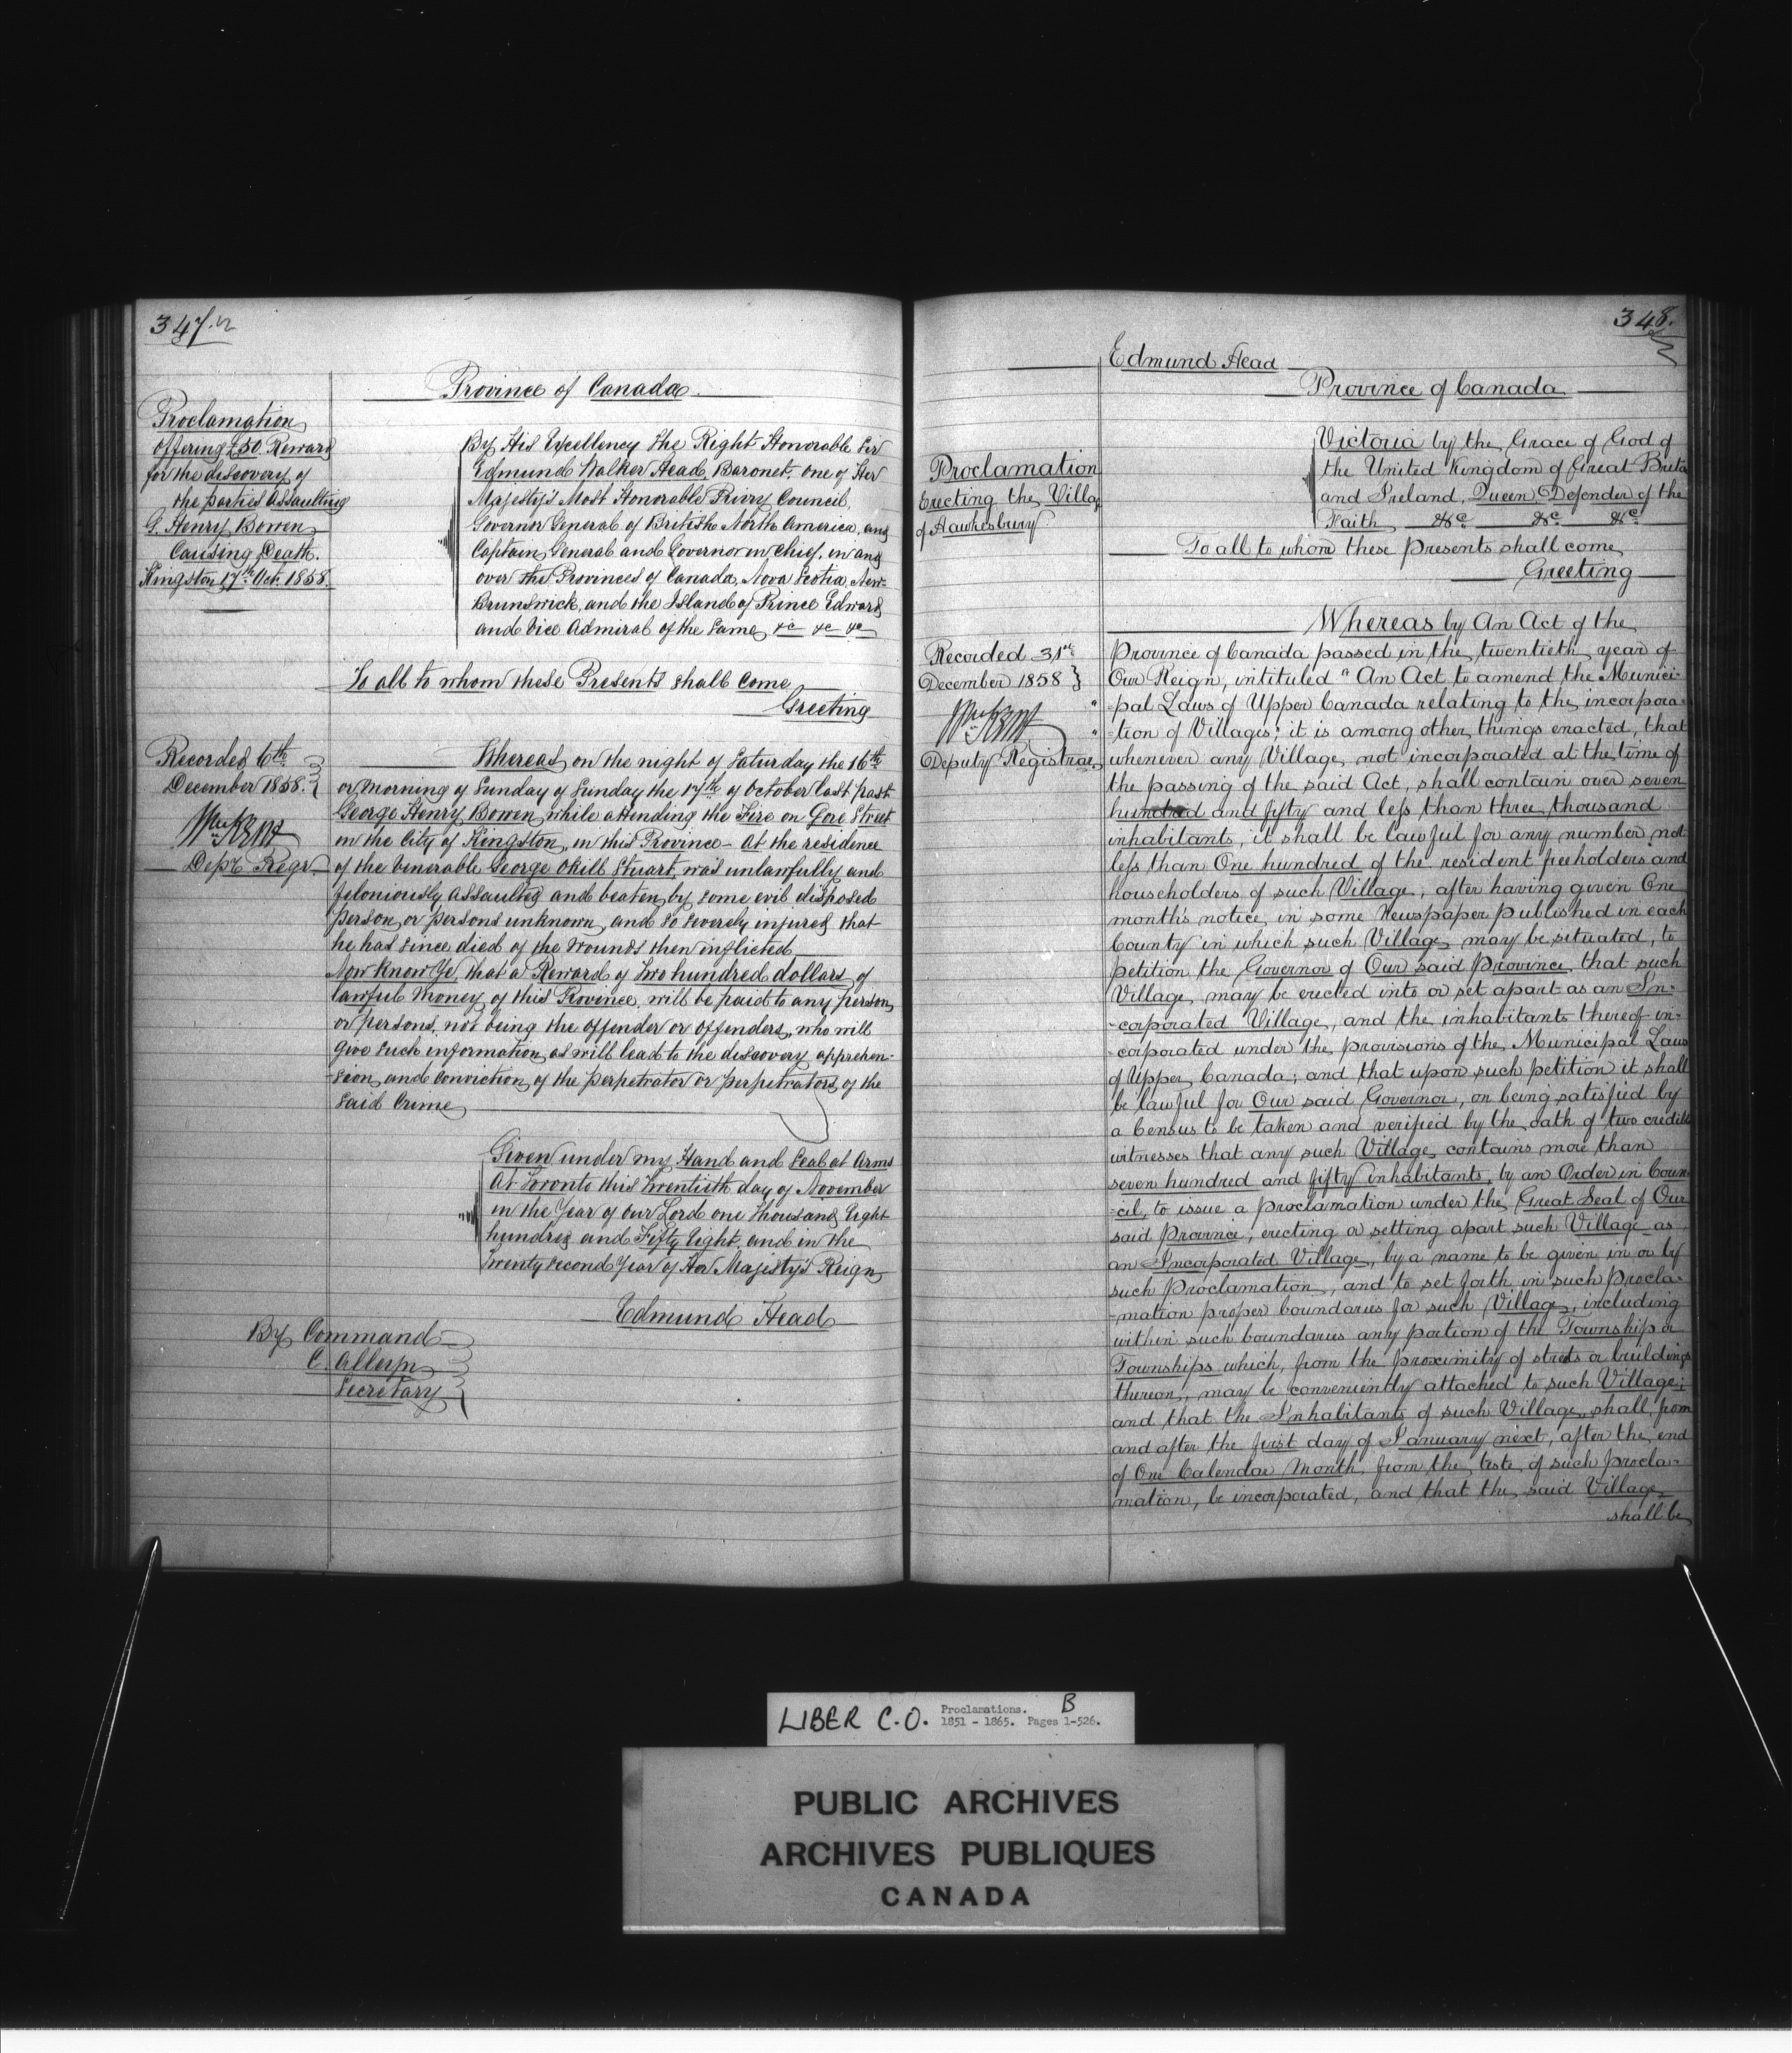 347.
Province of Canada.
Proclamation
offering £50. Reward
for the discovery of
the parties assaulting
G. Henry Bowen
Causing Death.
Kingston 17th Oct. 1858.
By His Excellency the Right Honorable Sir
Edmund Walker Head, Baronet, one of Her
Majesty's Most Honorable Privy Council,
Governor General of British North America, and
Captain General and Governor in Chief, in and
over the Provinces of Canada, Nova Scotia, New-
Brunswick, and the Island of Prince Edward
and Vice Admiral of the Same, &c &c &c
To all to whom these Presents shall come
Greeting
Recorded 6th
December 1858.
Depy. Regr.
Whereas on the night of Saturday the 16th
or morning of Sunday of Sunday the 17th of October last past
George Henry Bowen, while attending the Fire on Gore Street
in the City of Kingston, in this Province - At the residence
of the Venerable George Okill Stuart, was unlawfully and
feloniously assaulted and beaten, by some evil disposed
person, or persons unknown, and so severely injured that
he has since died of the wounds then inflicted
Now Know Ye, that a Reward of two hundred dollars, of
lawful money, of this Province, will be paid to any person,
or persons, not being the offender or offenders, who will
give such information, as will lead to the discovery apprehen-
-sion, and conviction, of the perpetrator or perpetrators, of the
said Crime,
Given under my Hand and Seal at Arms
At Toronto this twentieth day of November
in the Year of Our Lord one thousand Eight
hundred and Fifty Eight, and in the
twenty second Year of Her Majesty's Reign,
Edmund Head
By Command
C. Alleyn
Secretary
348.
Edmund Head
Province of Canada
Proclamation
Erecting the Villag
of Hawkesbury
Victoria by the Grace of God of
the United Kingdom of Great Brita
and Ireland, Queen, Defender of the
Faith &c &c &c
To all to whom these presents shall come,
Greeting
Recorded 31st
December 1858
Deputy Registrar
Whereas by An Act of the
Province of Canada passed in the twentieth year of
Our Reign, intituled "An Act to amend the Munici-
" -pal Laws of Upper Canada relating to the incorpora-
" -tion of Villages; it is among other things enacted, that
whenever any Village, not incorporated at the time of
the passing of the said Act, shall contain over seven
hundred and fifty and less than three thousand
inhabitants, it shall be lawful for any number not
less than One hundred of the resident freeholders and
householders of such Village, after having given One
month's notice, in some Newspaper published in each
County in which such Village may be situated, to
petition the Governor of Our said Province, that such
Village may be erected into or set apart as an In-
-corporated Village, and the inhabitants thereof in-
-corporated under the provisions of the Municipal Laws
of Upper Canada; and that upon such petition it shall
be lawful for Our said Governor, on being satisfied by
a Census to be taken and verified by the oath of two credible
witnesses that any such Village contains more than
seven hundred and fifty inhabitants, by an Order in Coun-
-cil, to issue a proclamation under the Great Seal of Our
said Province, erecting or setting apart such Village as
an Incorporated Village, by a name to be given in or by
such Proclamation, and to set forth in such Procla-
-mation proper boundaries for such Village, including
within such boundaries any portion of the Township or
Townships which, from the proximity of streets or buildings
thereon, may be conveniently attached to such Village;
and that the Inhabitants of such Village, shall, from
and after the first day of January next, after the end
of One Calendar Month, from the teste, of such Procla-
mation, be incorporated, and that the said Village
shall be
LIBER C.O.
Proclamations. B
1851 - 1865. Pages 1-526.
PUBLIC ARCHIVES
ARCHIVES PUBLIQUES
CANADA